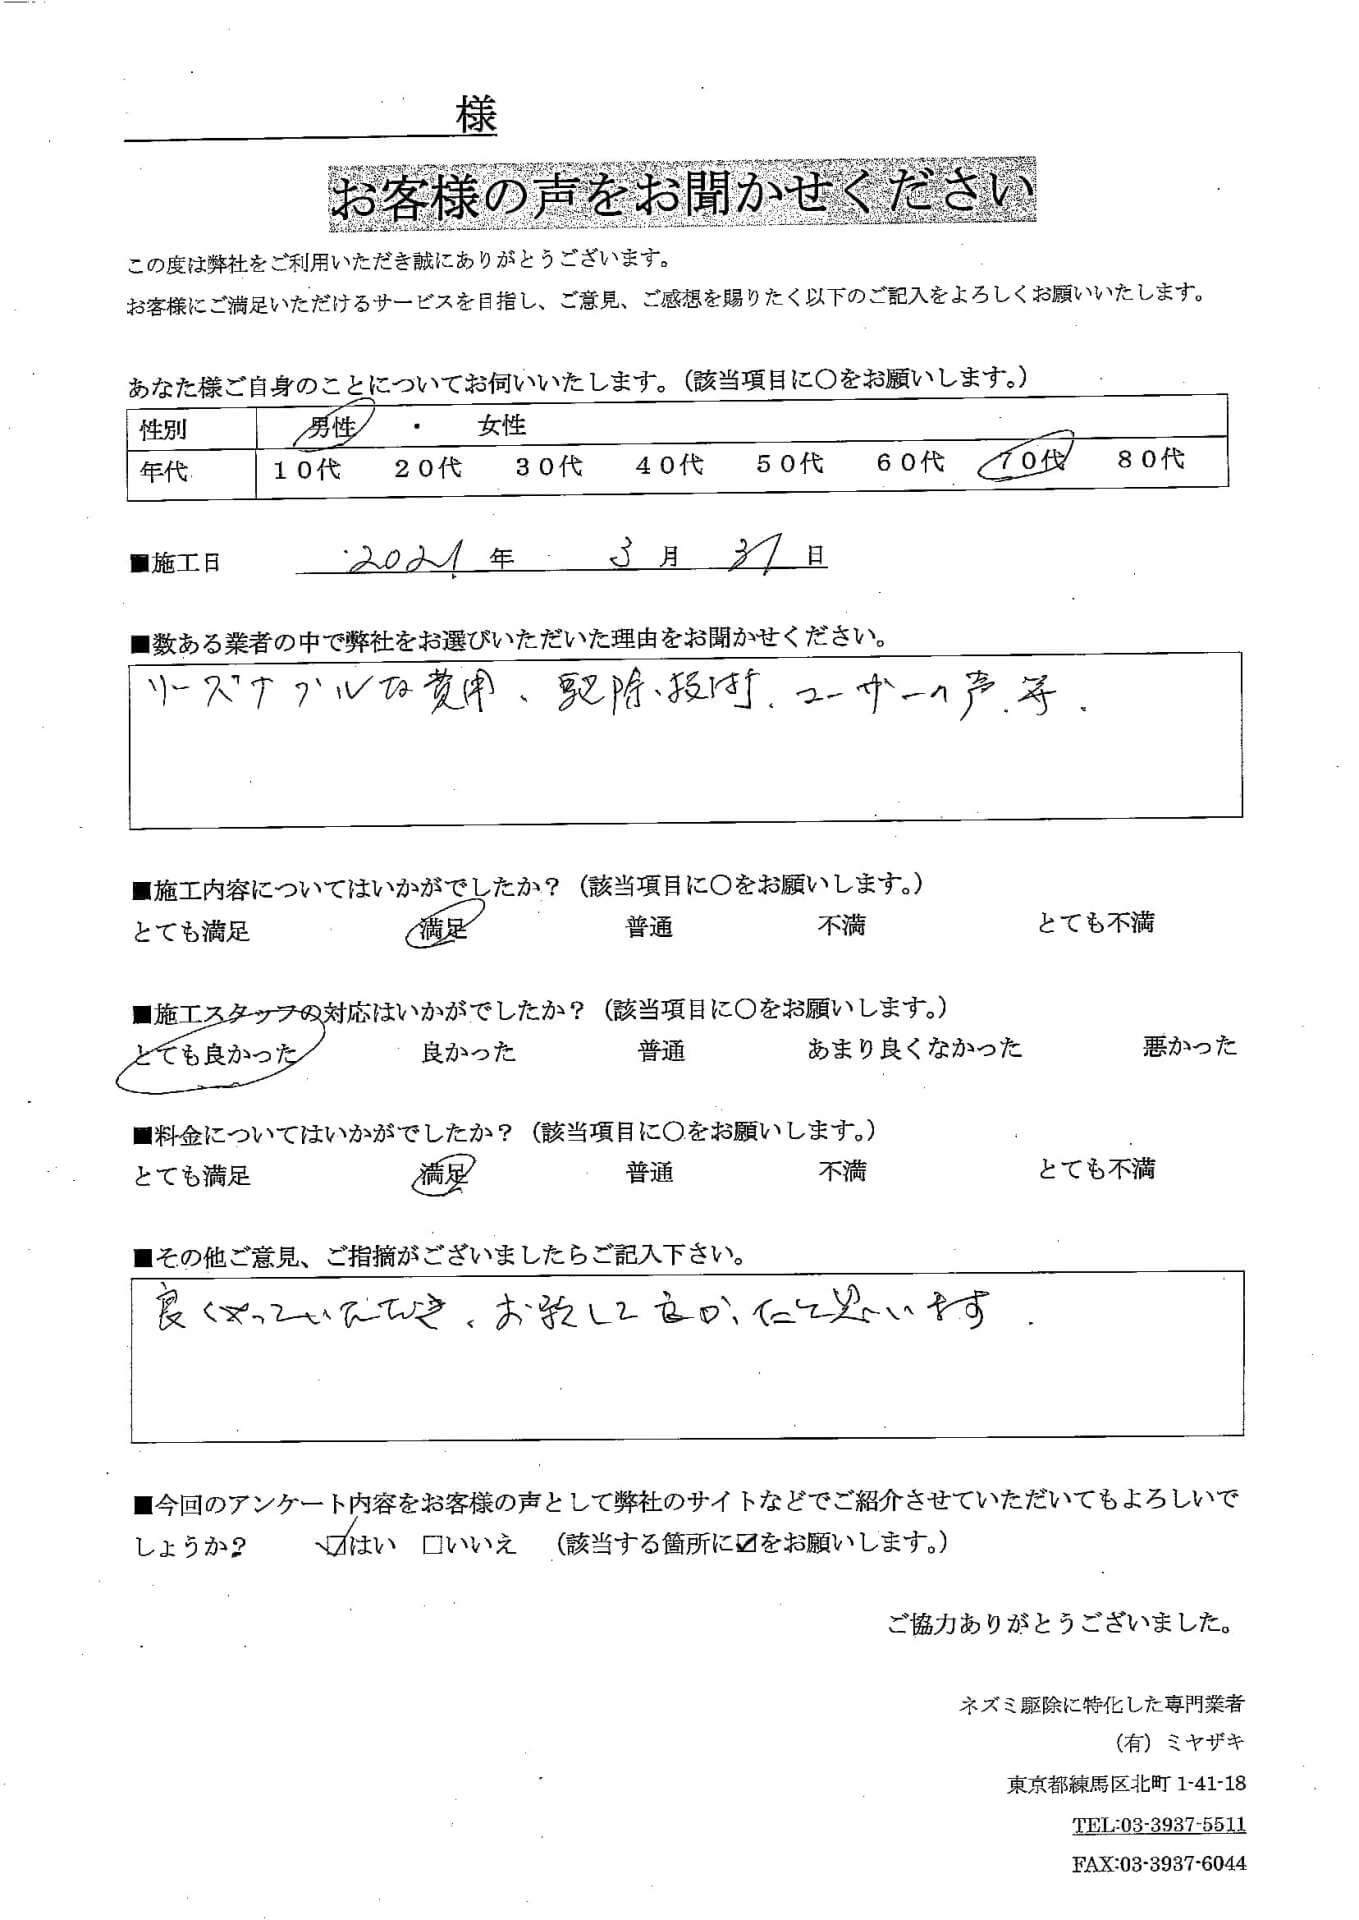 様
お客様の声をお聞かせください
この度は弊社をご利用いただき誠にありがとうございます。
お客様にご満足いただけるサービスを目指し、ご意見、ご感想を賜りたく以下のご記入をよろしくお願いいたします。
あなた様ご自身のことについてお伺いいたします。（該当項目に〇をお願いします。）
性別 男性 ・ 女性
年代 10代 20代 30代 40代 50代 60代 70代 80代
■施工日 2021年 3月 31日
■数ある業者の中で弊社をお選びいただいた理由をお聞かせください。
リーズナブルな費用、駆除技術、ユーザーの声、等.
■施工内容についてはいかがでしたか？（該当項目に〇をお願いします。）
とても満足 満足 普通 不満 とても不満
■施工スタッフの対応はいかがでしたか？（該当項目に〇をお願いします。）
とても良かった 良かった 普通 あまり良くなかった 悪かった
■料金についてはいかがでしたか？（該当項目に〇をお願いします。）
とても満足 満足 普通 不満 とても不満
■その他ご意見、ご指摘がございましたらご記入下さい。
良くやっていただき、お願いして良かったと思います.
■今回のアンケート内容をお客様の声として弊社のサイトなどでご紹介させていただいてもよろしいで
しょうか？ ☑はい □いいえ （該当する箇所に☑をお願いします。）
ご協力ありがとうございました。
ネズミ駆除に特化した専門業者
（有）ミヤザキ
東京都練馬区北町 1-41-18
TEL:03-3937-5511
FAX:03-3937-6044